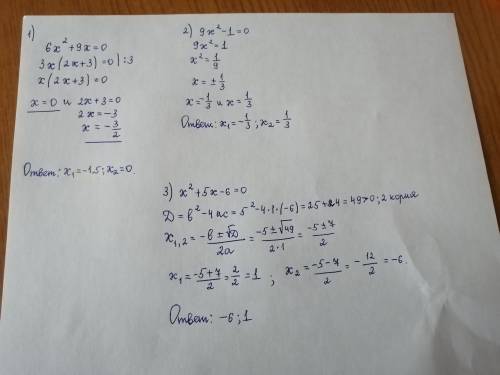 1)
6x²+9x=0
3x(2x+3)=0 |:3
x(2x+3)=0
x=0 и 2x+3=0
2x=-3
x=-3/2
Ответ: x₁=-1.5; x₂=0.
2) 9x²-1=0
9x²=1
x²=1/9
x=±1/3
x=-1/3 и x=1/3
Ответ: x₁=-1/3; x₂=1/3
3) x²+5x-6=0
D=b²-4ac=5²-4·1·(-6)=25+24=49>0; 2 корня
x₁,₂=(-b±√D)/2a=(-5±√49)/2·1=(-5±7)/2
x₁=(-5+7)/2=2/2=1; x₂=(-5-7)/2=-12/2=-6.
Ответ: -6; 1